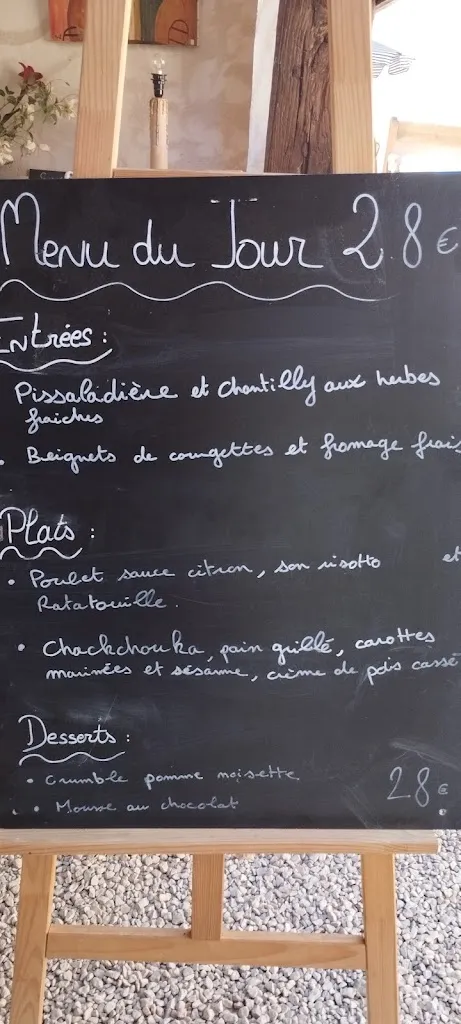 Menu du Jour 28€
Entrées :
Pissaladière et chantilly aux herbes
fraiches
• Beignets de courgettes et fromage frais
Plats :
• Poulet sauce citron, son risotto et
Ratatouille.
• Chackchouka, pain grillé, carottes
marinées et sésame, crème de pois cassé
Desserts :
• Crumble pomme noisette
• Mousse au chocolat
28€